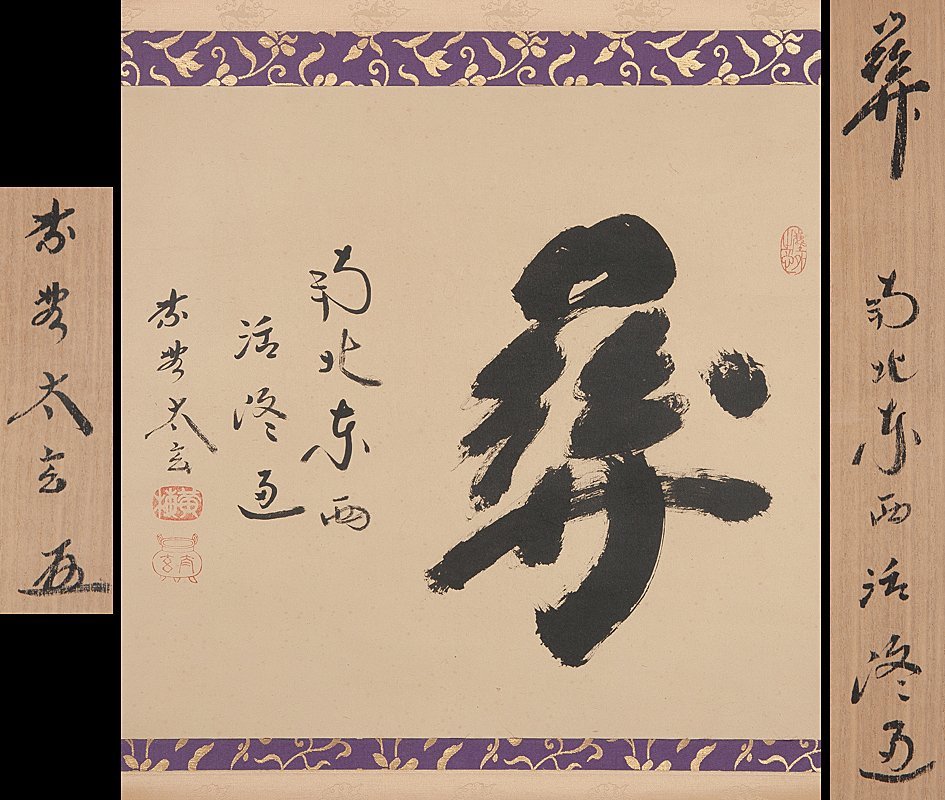 關 南北東西活路通
關
南北東西
活路通
紫野太玄
紫野太玄